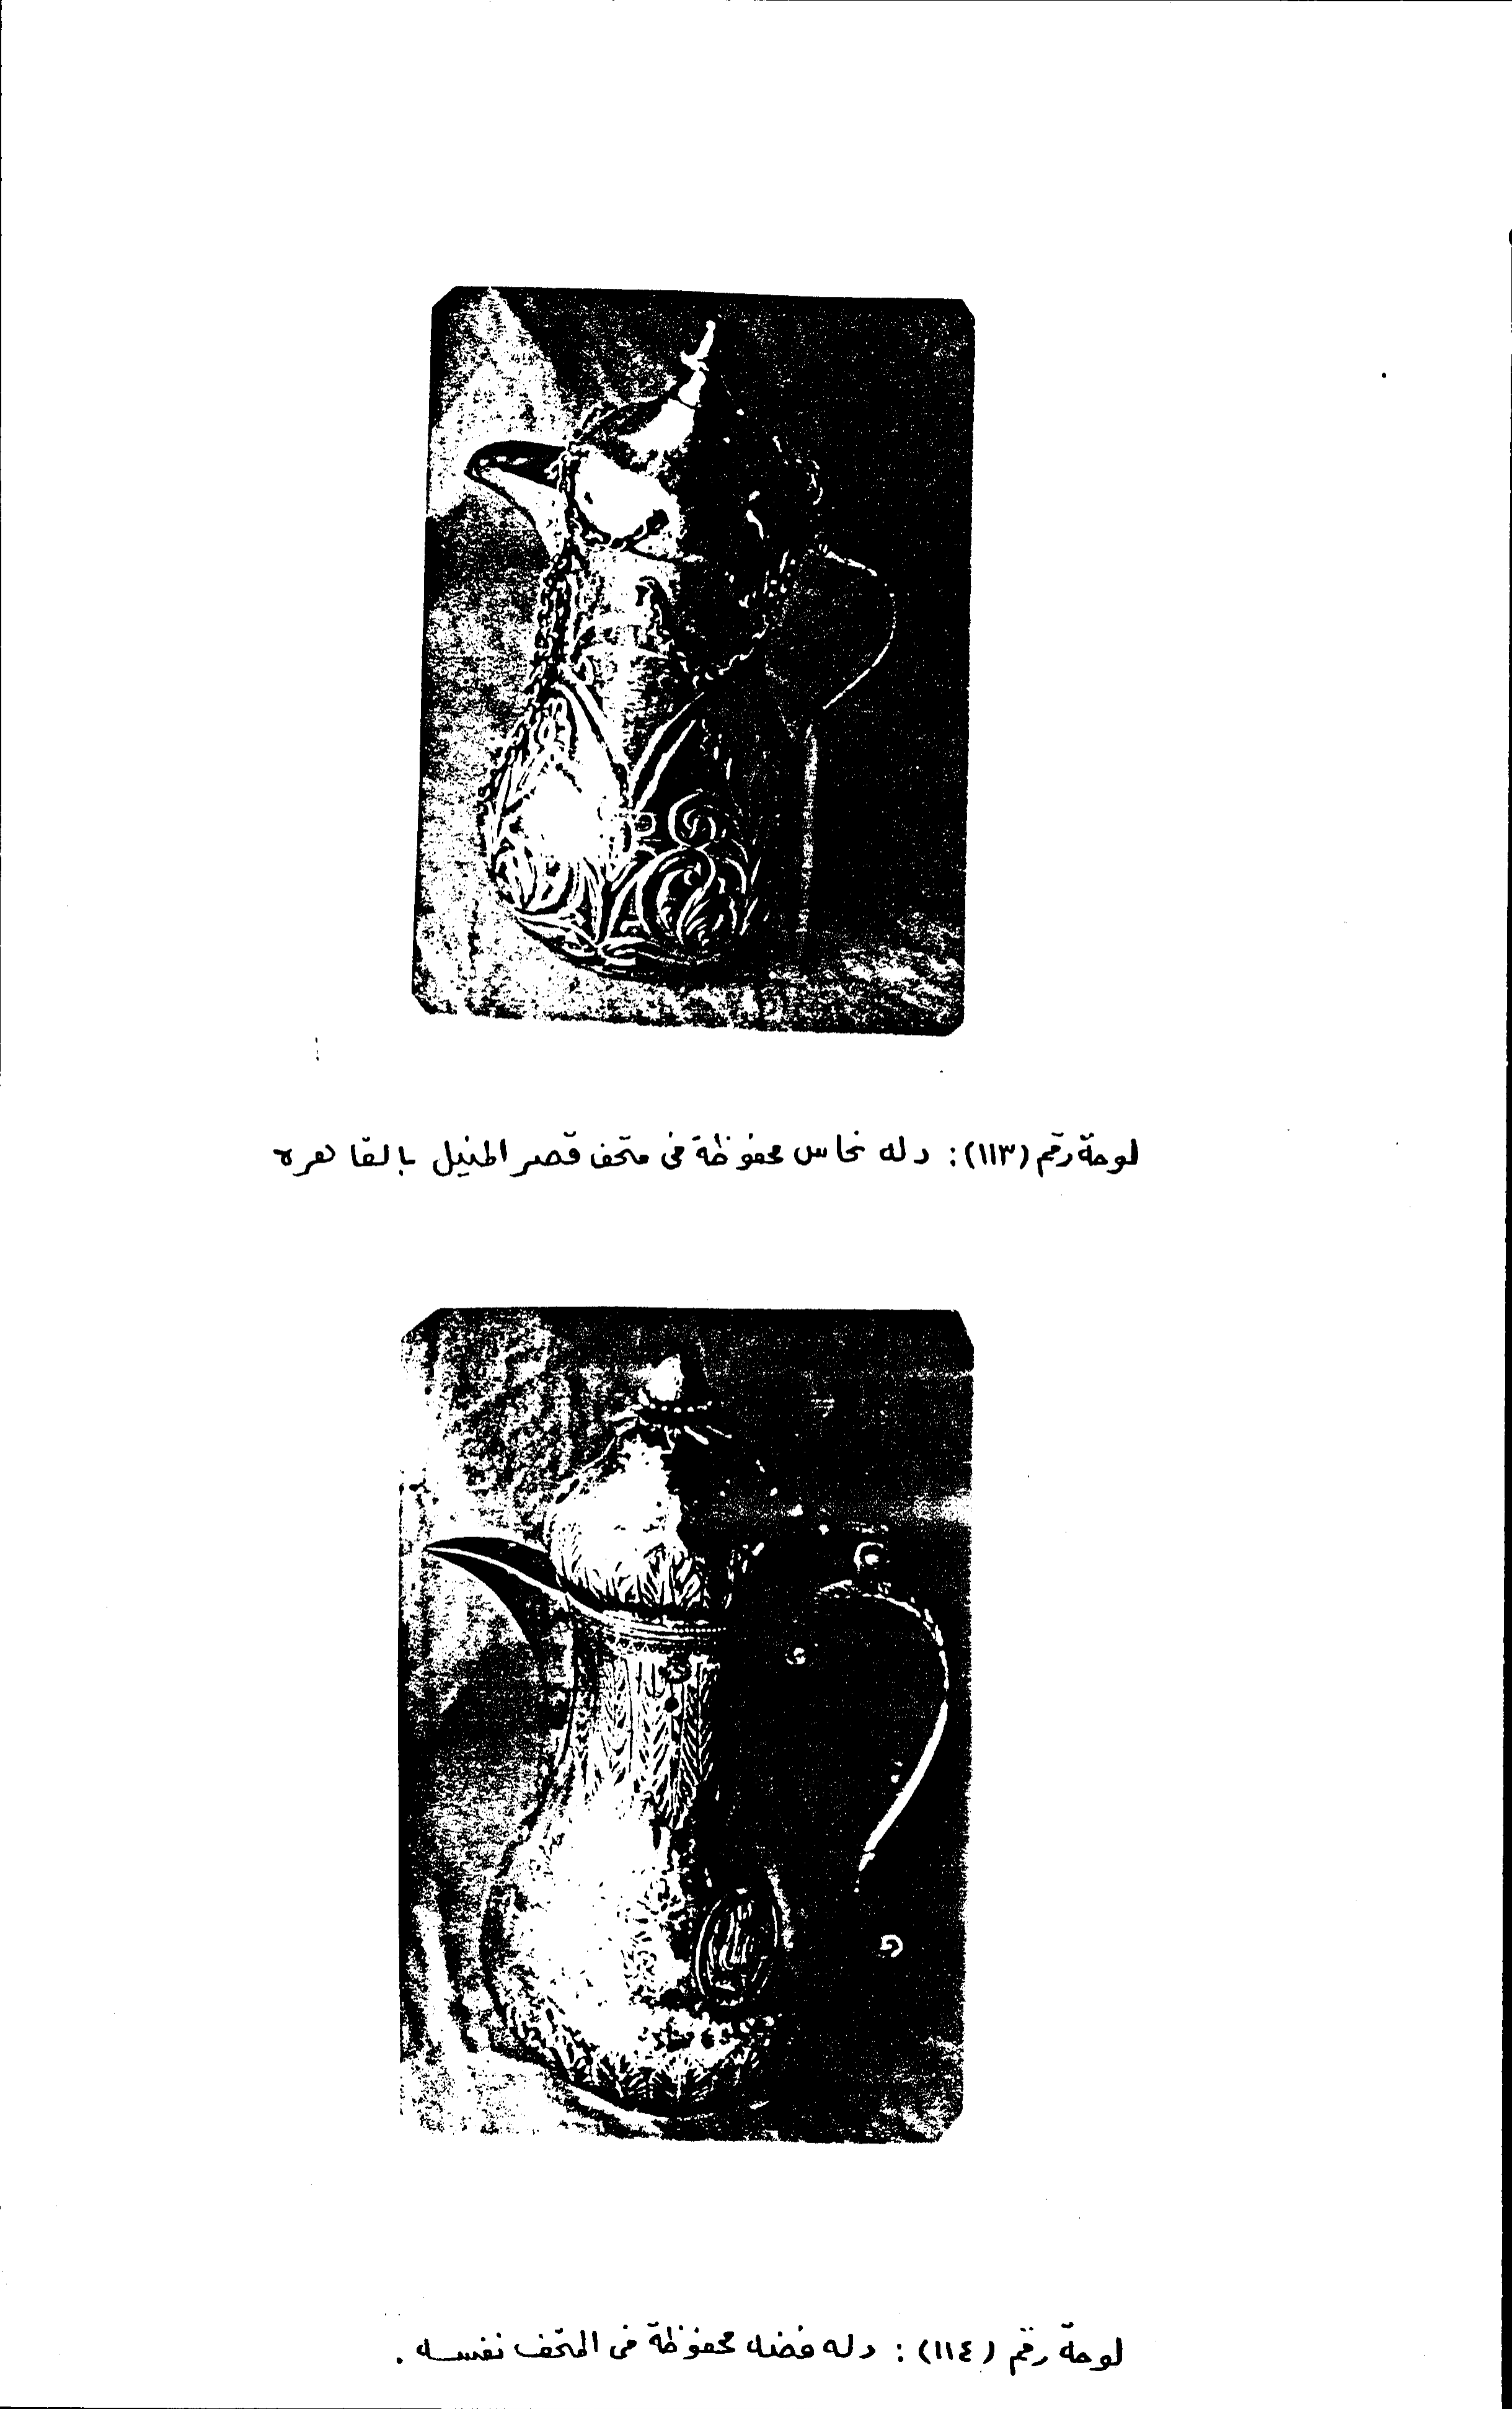 لوحة رقم (١١٣): دله نحاس محفوظة فى متحف قصر المنيل بالقاهره
لوحة رقم (١١٤): دله فضه محفوظة فى المتحف نفسه .